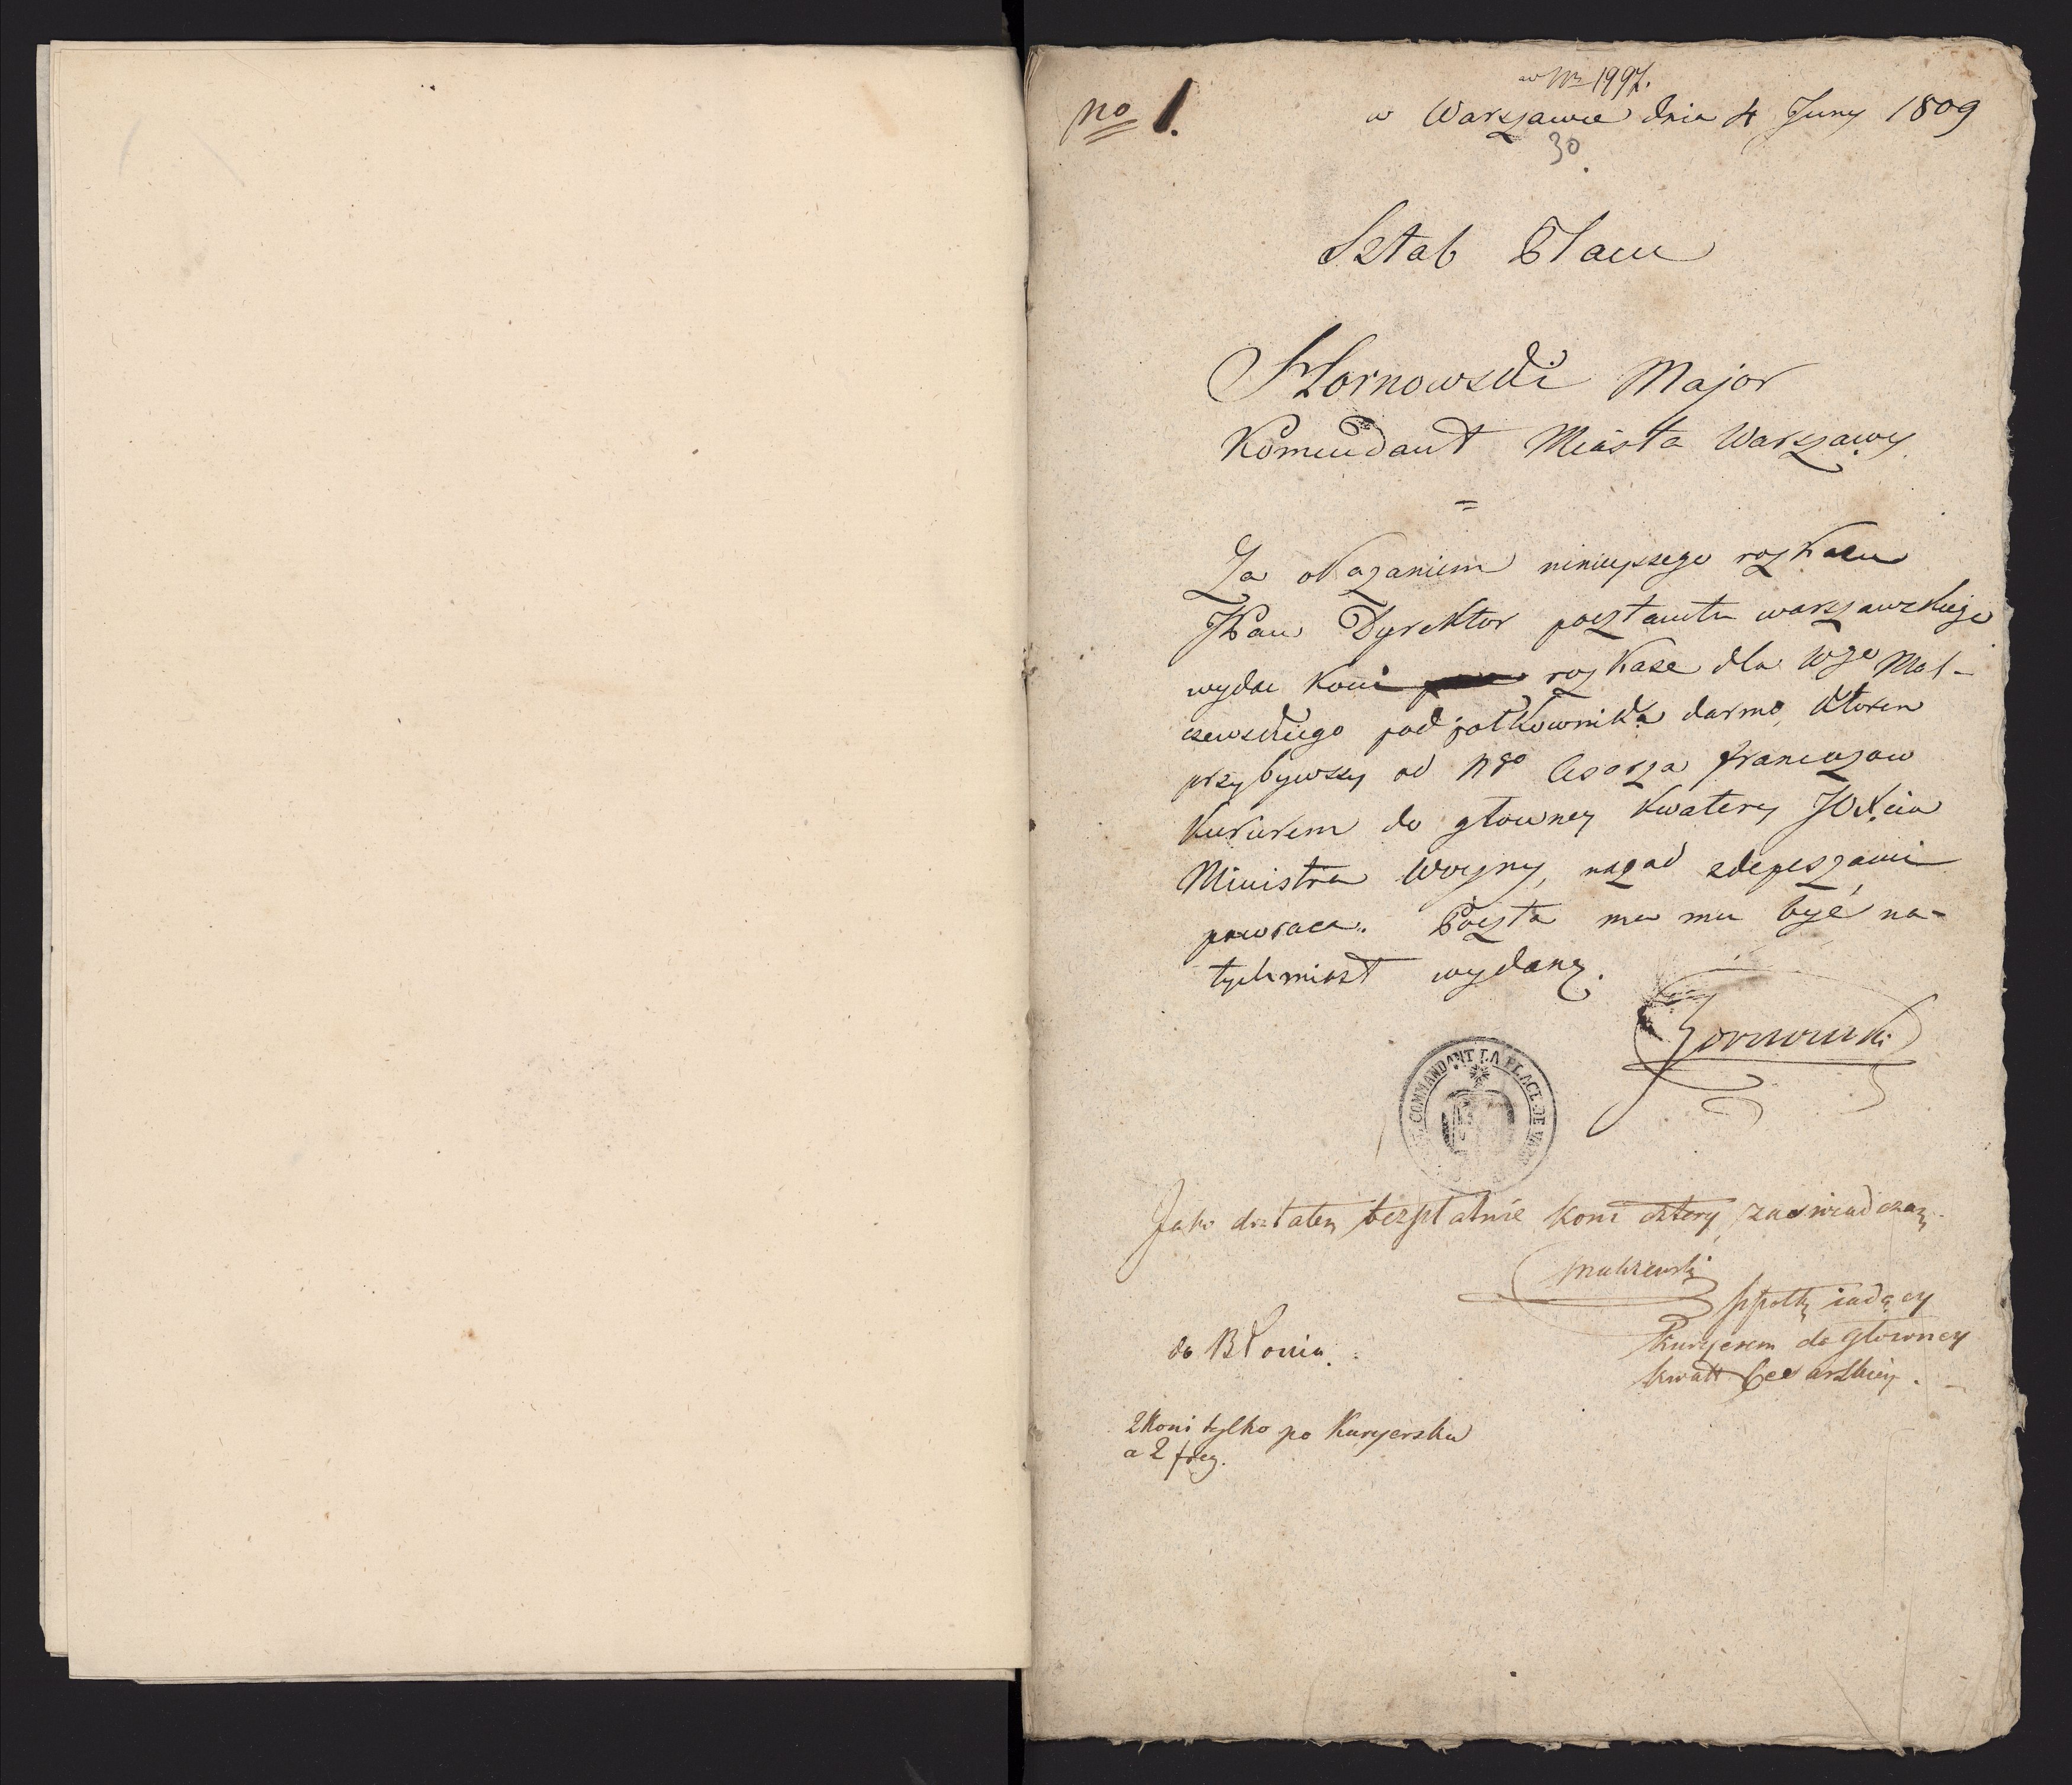 w Nr 1997.
no 1.
w Warszawie dnia 4 Juny 1809
30.
Sztab Placu
Hornowski Major
Komendant Miasta Warszawy.
=
Za okazaniem ninieyszego rozkazu
JPan Dyrektor pocztamtu warszawskiego
wydac koni rozkaze dla Wgo Mal-
czewskiego podpołkownika darmo, ktoren
przybywszy od Ngo Cesarza francuzow
kurierem do głowney kwatery JOXcia
Ministra Woyny, nazad zdepeszami
powraca. Poczta ma mu być na-
tychmiast wydaną.
Hornowski
COMMANDANT LA PLACE DE VAR
Jako dostałem bezpłatnie koni cztery zaswiadczam.
Malczewski
ppołk iadący
kuryerem do głowney
kwatt Cesarskiey.
do Błonia.
2 koni tylko po Kuryersku
a 2